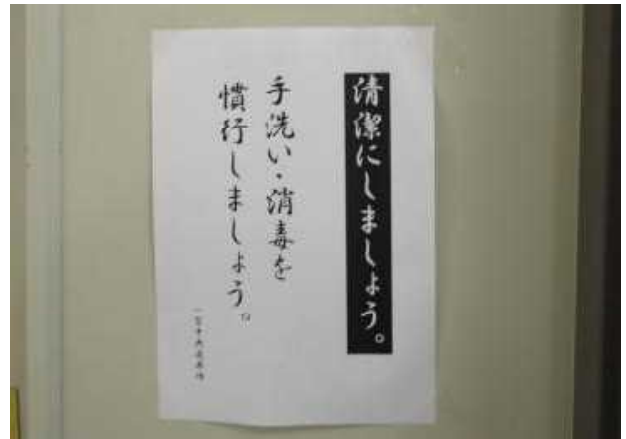 清潔にしましょう。
手洗い・消毒を
慣行しましょう。